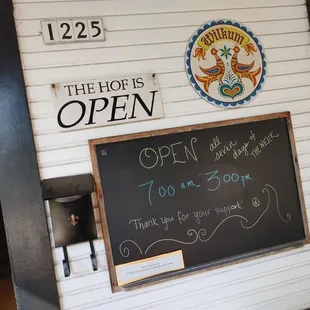 1225
Wilkum
THE HOF IS
OPEN
OPEN all seven days of THE WEEK
7:00 am - 3:00 pm
Thank you for your support